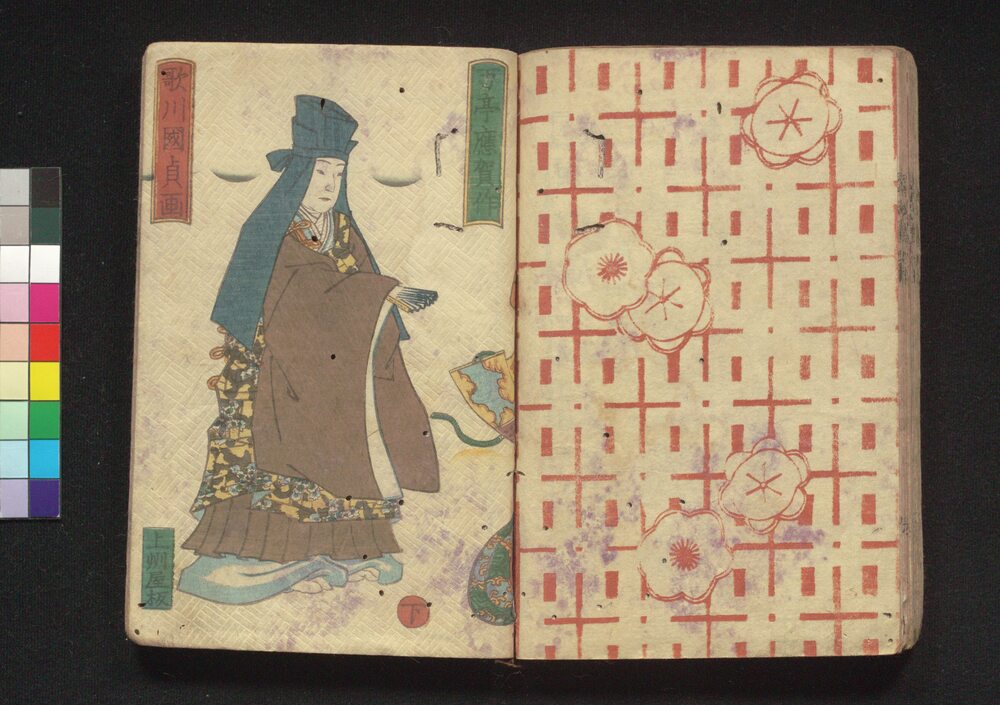 亭應賀作
歌川國貞画
上州屋板
下